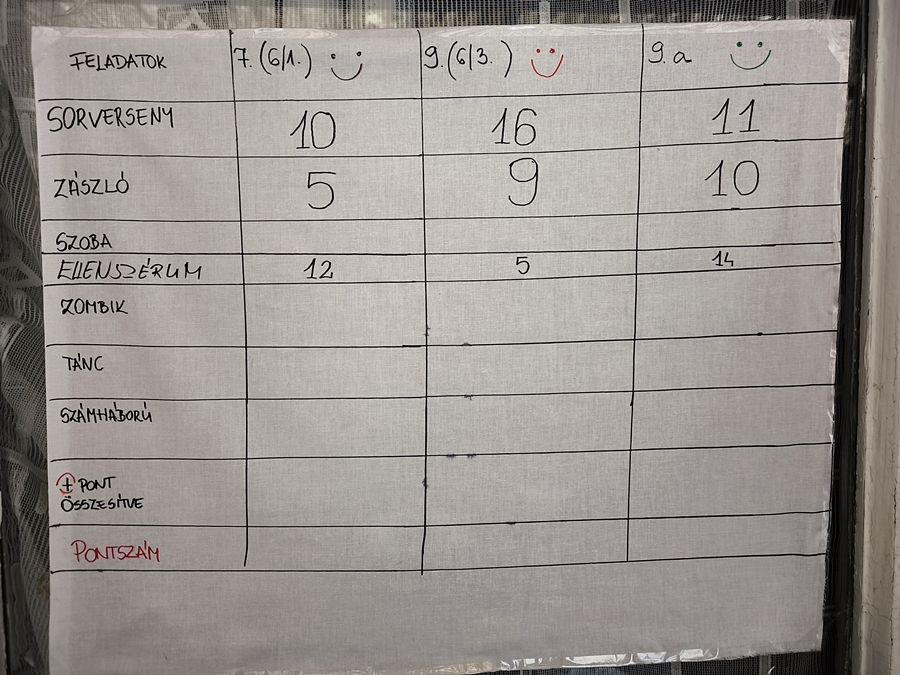 FELADATOK 7. (6/1.) 9. (6/3.) 9. a
SORVERSENY 10 16 11
ZÁSZLÓ 5 9 10
SZOBA
ELLENSZÉRUM 12 5 14
ZOMBIK
TÁNC
SZÁMHÁBORÚ
+ PONT
ÖSSZESÍTVE
PONTSZÁM